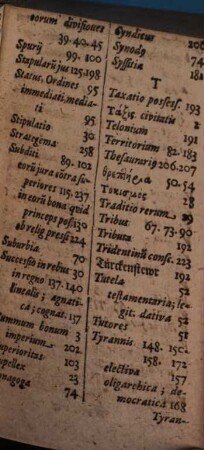 eorum divisiones
39.40.45
Spurij 99.100
Stapularū jus 125.198
Status, Ordines 95
immediati, media-
ti 95
Stipulatio 30
Strategema 258
Subditi 89.102
eorū jura cōtra su-
periores 115.237
in eorū bona quid
princeps poss. 130
ob relig. pressi 224
Suburbia 70
Successio in rebus 30
in regno 137.140
linealis; agnati-
ca; cognat. 137
Summum bonum 3
imperium 202.
Superioritas 103
Supellex 23
Synagoga
74
Syndicus 206
Synodꝰ 74
Syssitia 182
T
Taxatio posses. 193
Τάξις civitatis 2
Telonium 191
Territorium 82.183
Thesaurariꝰ 206.207
θρεπτήρια 50.54
Τοκισμος 28
Traditio rerum 29
Tribut 67.73.90
Tributa 192
Tridentinū conf. 223
Türckensteur 192
Tutela 52
testamentaria; le-
git. dativa 52
Tutores 51
Tyrannis 148.150.
158.172
electiva 157
oligarchica; de-
mocratica 168
Tyran-